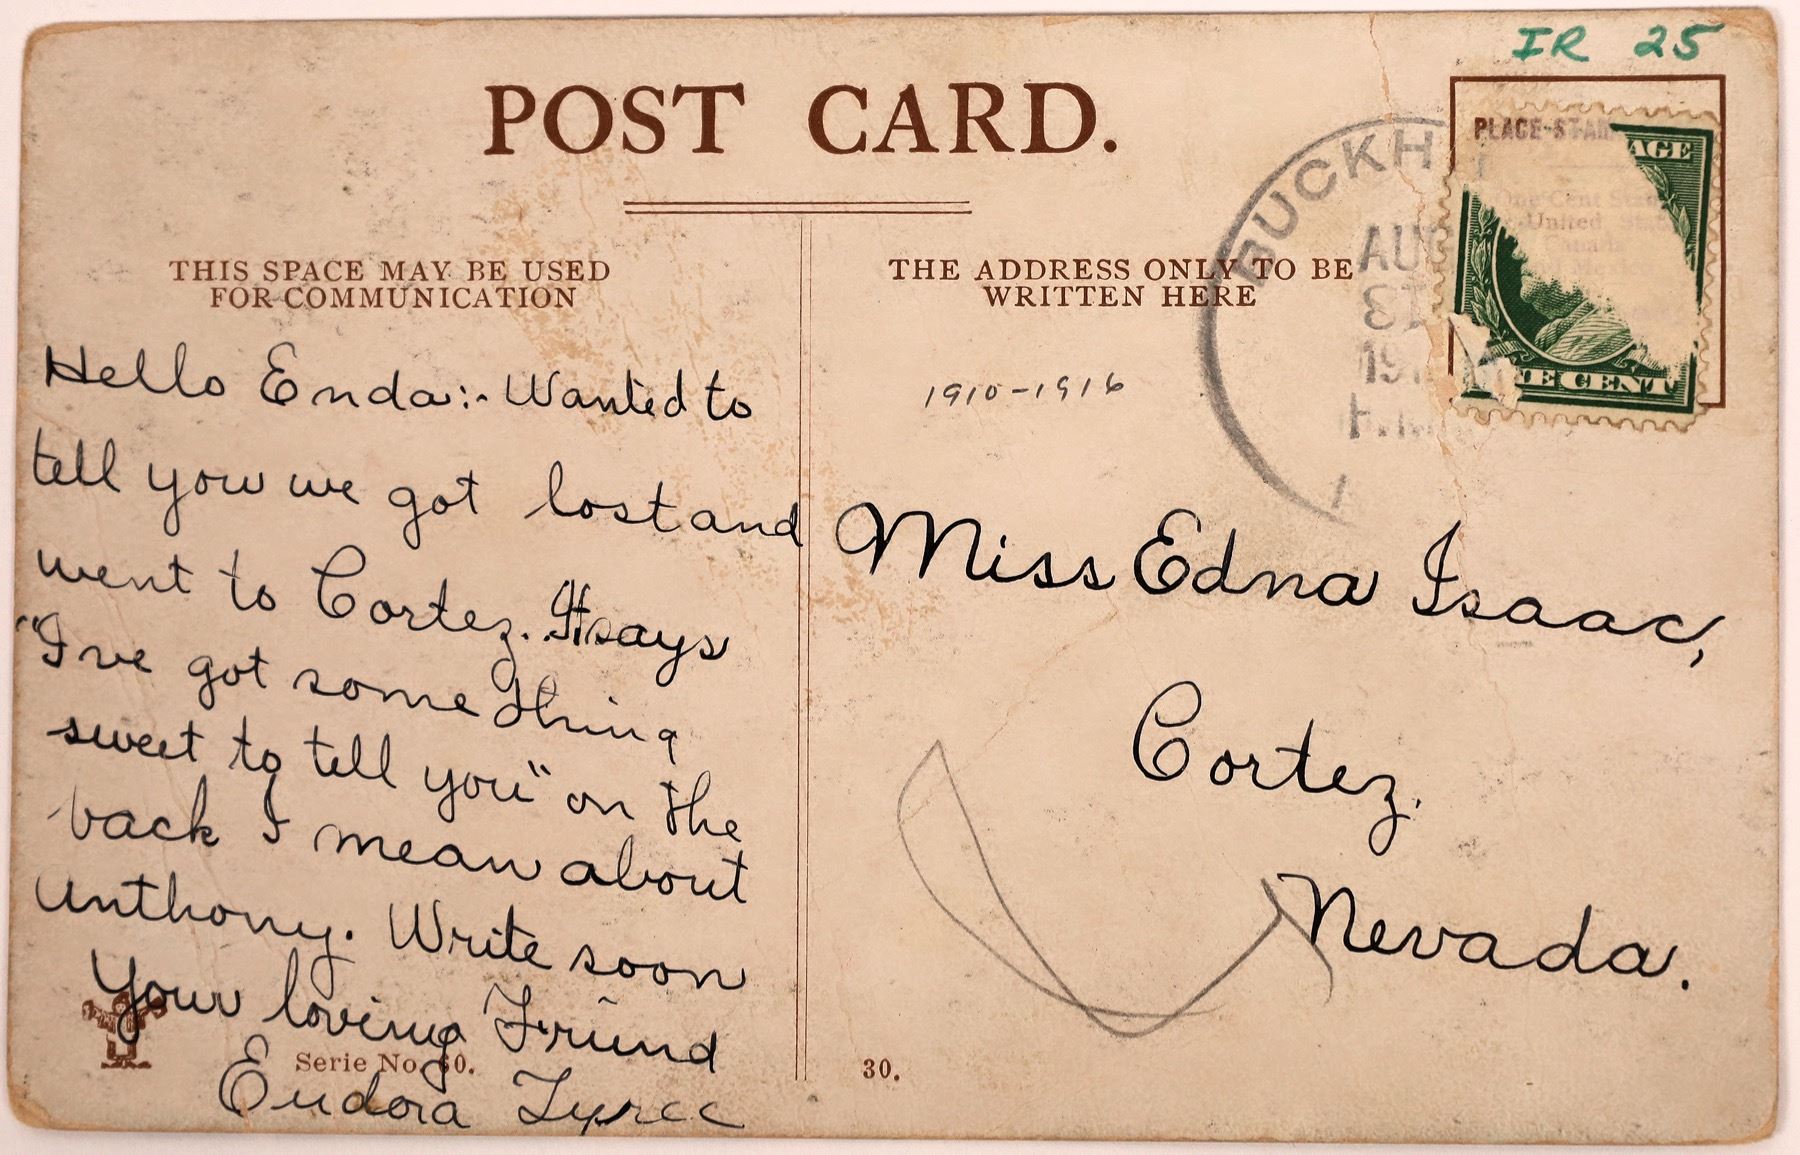 IR 25
POST CARD.
PLACE STAM
AGE
One Cent
United Sta
Canada
ONE CENT
BUCKH
AU
31
191
P.M.
THIS SPACE MAY BE USED
FOR COMMUNICATION
THE ADDRESS ONLY TO BE
WRITTEN HERE
1910-1916
Hello Enda:- Wanted to
tell you we got lost and
went to Cortez. It says
"I've got something
sweet to tell you" on the
back I mean about
Anthony. Write soon
Your loving Friend
Eudora Tyree
Miss Edna Isaac,
Cortez.
Nevada.
Serie No. 30.
30.